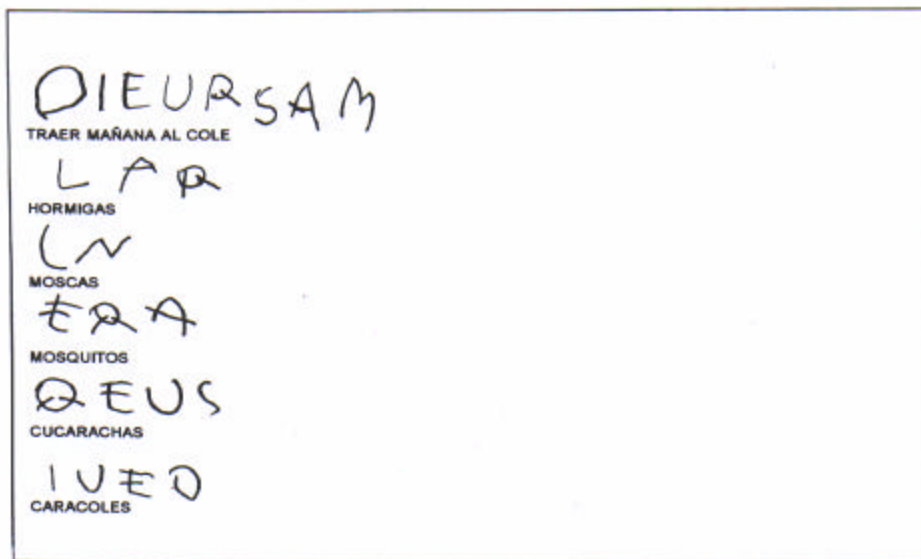 DIEURSAM
TRAER MAÑANA AL COLE
LAR
HORMIGAS
LN
MOSCAS
ERA
MOSQUITOS
QEUS
CUCARACHAS
IUEO
CARACOLES